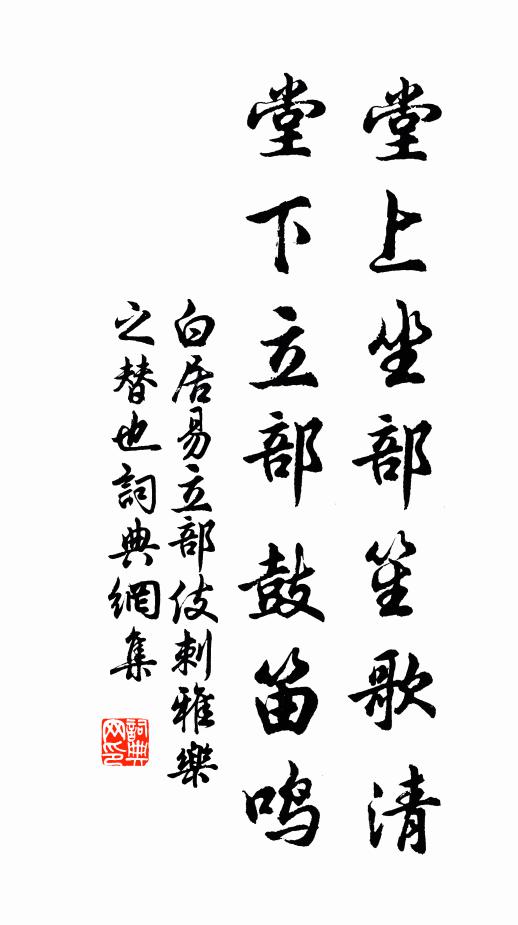 堂上坐部笙歌清
堂下立部鼓笛鸣
白居易立部伎刺雅樂
之替也詞典網集
詞典
网印